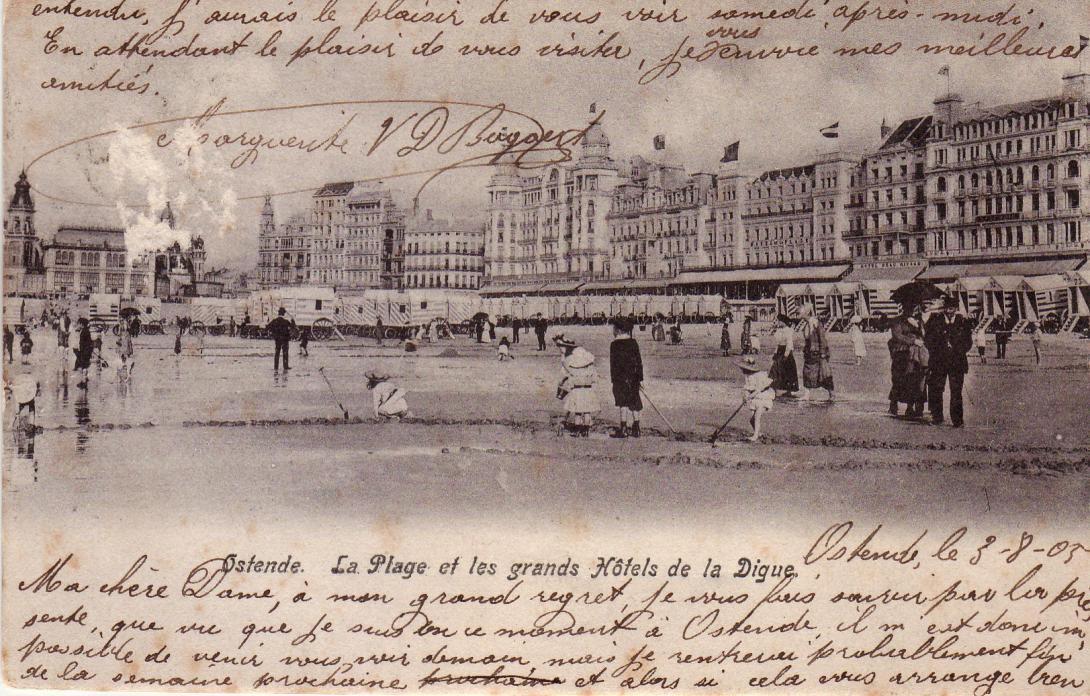 entendu, j'aurais le plaisir de vous voir samedi après-midi.
En attendant le plaisir de vous visiter, je vous envoie mes meilleures
amitiés.
Marguerite V D Boggert
Ostende. La Plage et les grands Hôtels de la Digue.
Ostende, le 3-8-03
Ma chère Dame, à mon grand regret, je vous fais savoir par la pré
sente, que vu que je suis en ce moment à Ostende, il m'est donc im
possible de venir vous voir demain, mais je rentrerai probablement fin
de la semaine prochaine et alors si cela vous arrange bien